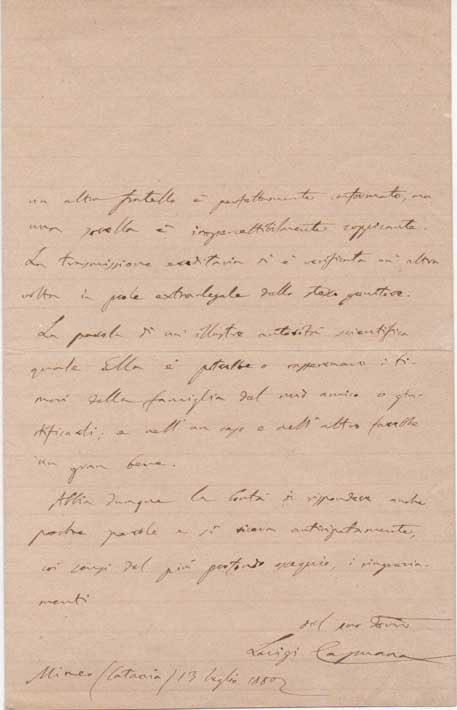 un altro fratello è perfettamente conformato, ma
una sorella è impercettibilmente zoppicante.
La trasmissione ereditaria si è verificata un'altra
volta in prole extralegale dello stesso genitore.
La parola di un'illustre autorità scientifica
quale Ella è potrebbe o rasserenare i ti-
mori della famiglia del mio amico o giu-
stificarli; e nell'un caso e nell'altro farebbe
un gran bene.
Abbia dunque la bontà di rispondere anche
poche parole e si riceva anticipatamente,
coi sensi del più profondo ossequio, i ringrazia-
menti
del suo
Luigi Capuana
Mineo (Catania) 13 luglio